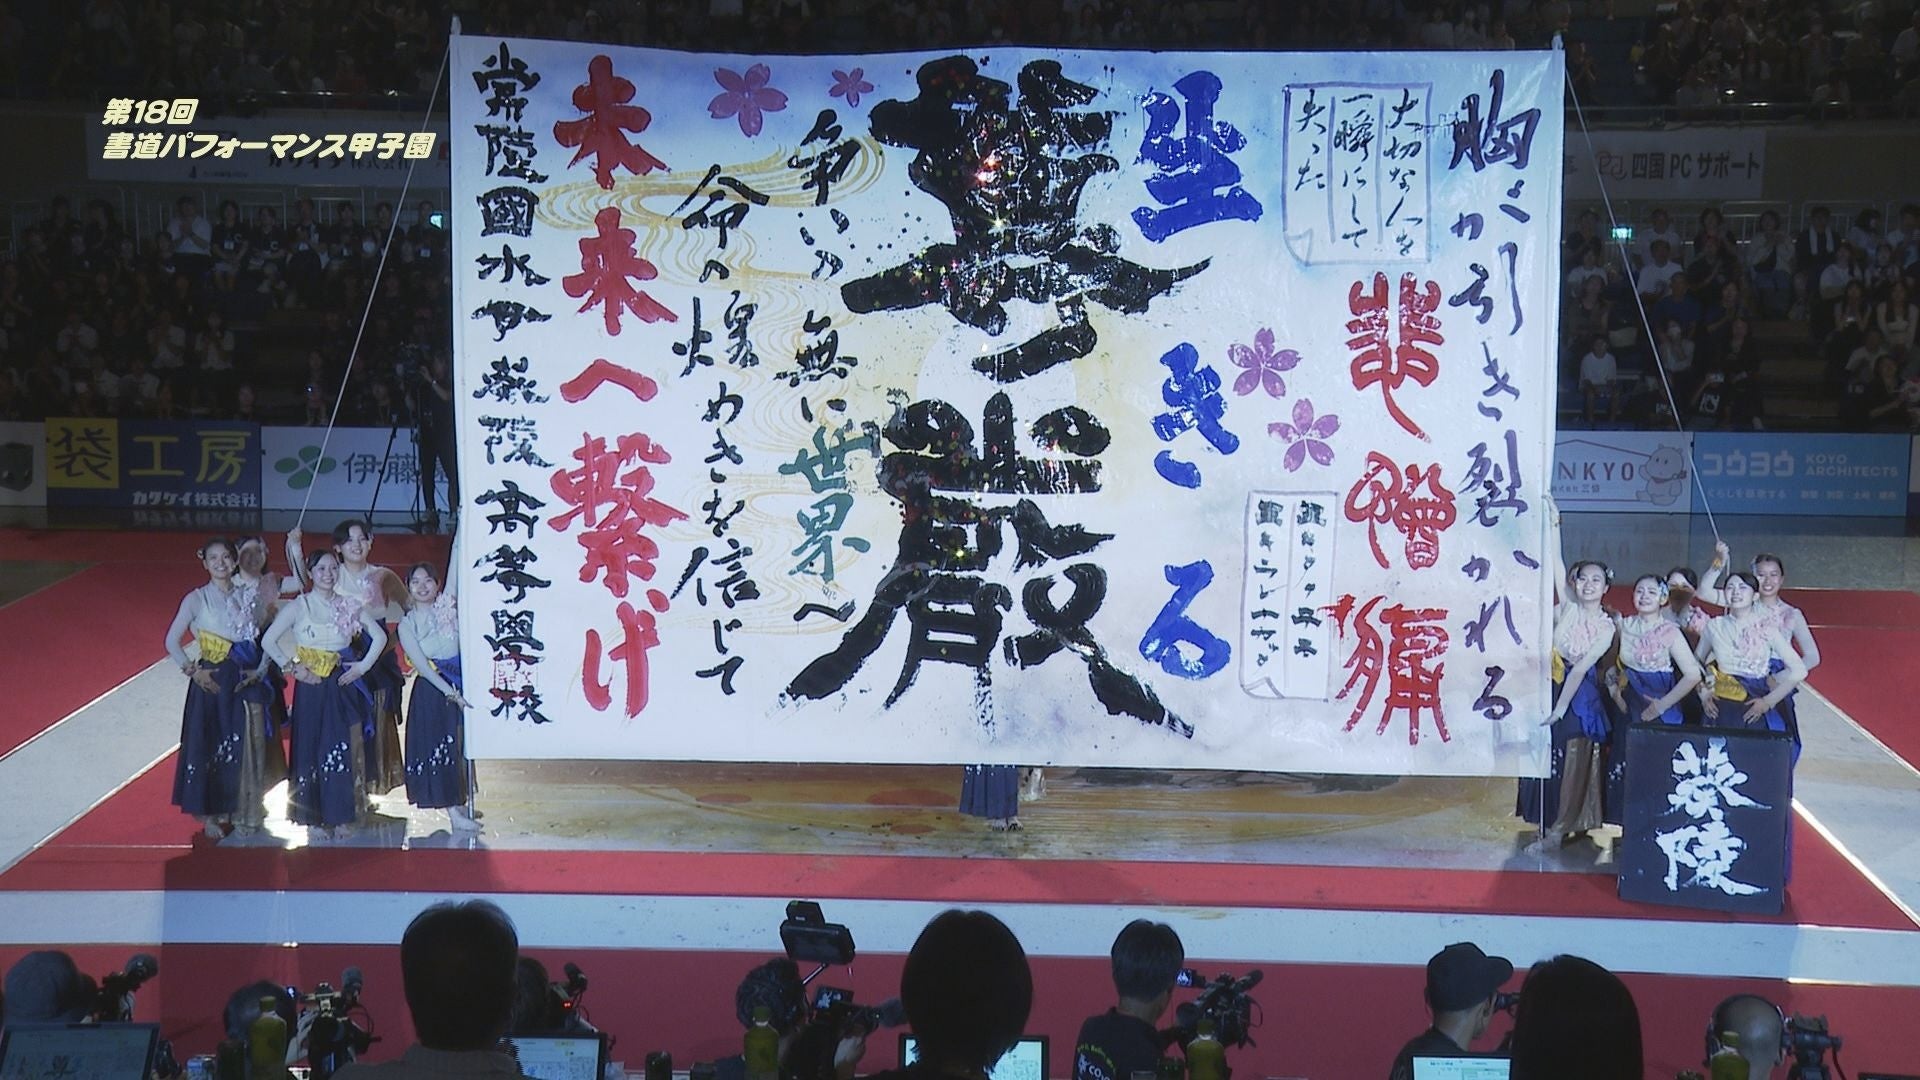 第18回
書道パフォーマンス甲子園
胸が引き裂かれる
大切な人を
一瞬にして
失った
悲憎痛
生きる
尊厳
争いの無い世界へ
命の煌めきを信じて
未来へ繋げ
常陸國水戸葵陵高等學校
葵陵
四国PCサポート
袋工房
カクケイ株式会社
伊藤
NKYO
株式会社三協
コウヨウ
KOYO
ARCHITECTS